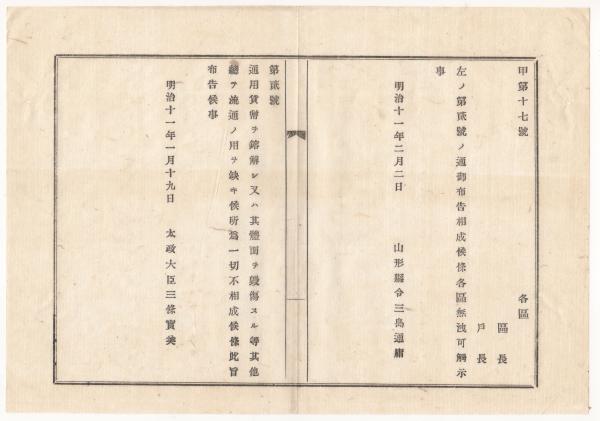 甲第十七號
各區
區長
戸長
左ノ第貳號ノ通御布告相成候條各區無洩可觸示
事
明治十一年二月二日
山形縣令三島通庸
第貳號
通用貨幣ヲ鎔解シ又ハ其體面ヲ毀傷スル等其他
總テ流通ノ用ヲ缺キ候所爲一切不相成候條此旨
布告候事
明治十一年一月十九日
太政大臣三條實美